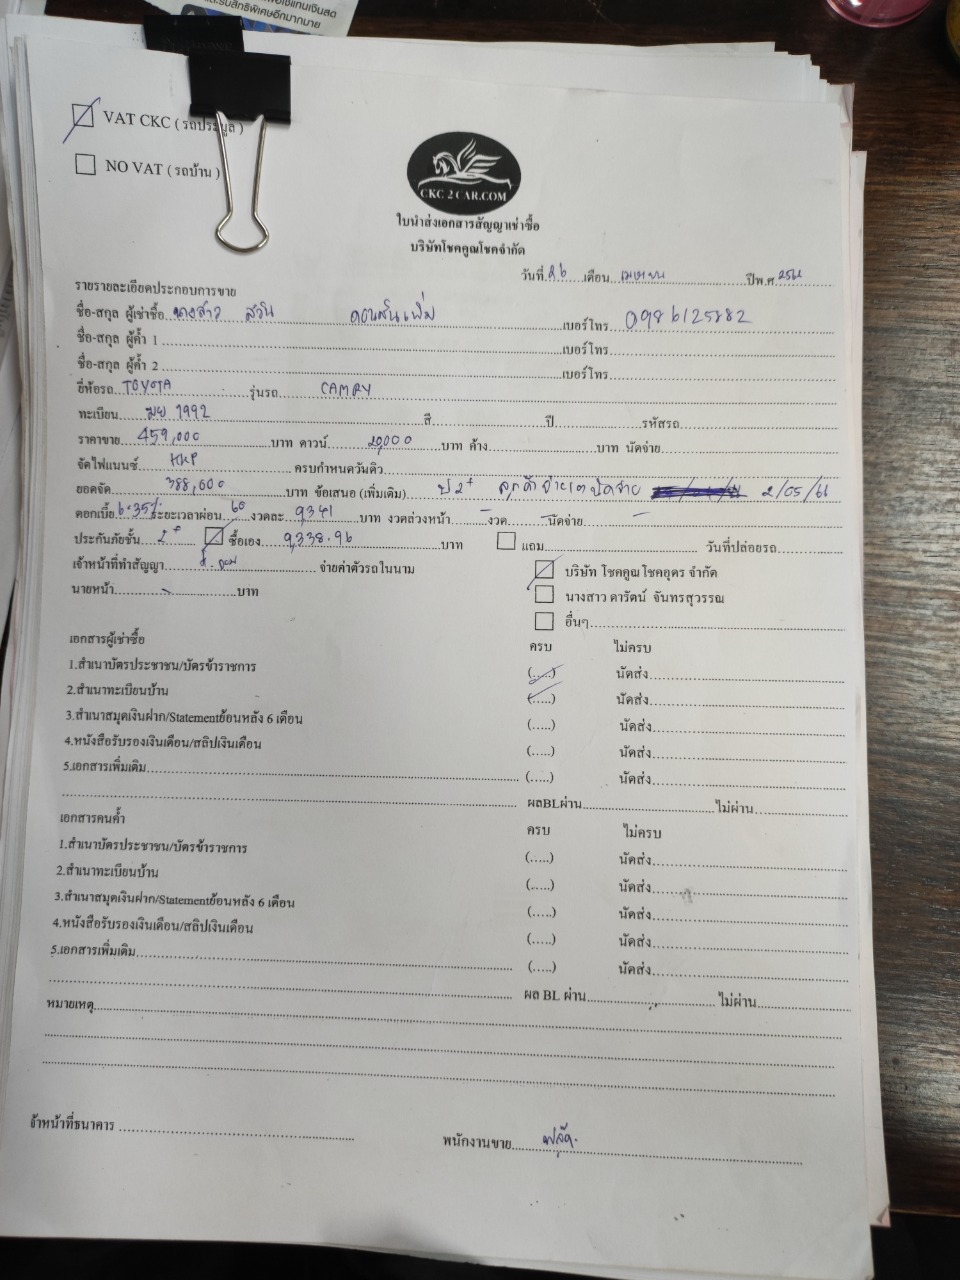 และรับสิทธิพิเศษอีกมากมาย
VAT CKC ( รถประมูล )
NO VAT ( รถบ้าน )
CKC 2 CAR.COM
ใบนำส่งเอกสารสัญญาเช่าซื้อ
บริษัทโชคคูณโชคจำกัด
วันที่ 26 เดือน เมษายน ปีพ.ศ.
รายรายละเอียดประกอบการขาย
ชื่อ-สกุล ผู้เช่าซื้อ นางสาว เบอร์โทร 0986125882
ชื่อ-สกุล ผู้ค้ำ 1 เบอร์โทร
ชื่อ-สกุล ผู้ค้ำ 2 เบอร์โทร
ยี่ห้อรถ TOYOTA รุ่นรถ CAMRY
ทะเบียน 1992 สี ปี รหัสรถ
ราคาขาย 459,000 บาท ดาวน์ 20,000 บาท ค้าง บาท นัดจ่าย
จัดไฟแนนซ์ KKP ครบกำหนดวันดิว
ยอดจัด 388,600 บาท ข้อเสนอ (เพิ่มเติม) ป 2+ ลูกค้าจ่าย นัดจ่าย 2/05/66
ดอกเบี้ย 6.35% ระยะเวลาผ่อน 60 งวดละ 9,341 บาท งวดล่วงหน้า - งวด - นัดจ่าย -
ประกันภัยชั้น 2+ ซื้อเอง 9,338.96 บาท แถม วันที่ปล่อยรถ
เจ้าหน้าที่ทำสัญญา จ่ายค่าตัวรถในนาม บริษัท โชคคูณโชคอุดร จำกัด
นายหน้า - บาท นางสาว ดารัตน์ จันทรสุวรรณ
อื่นๆ
เอกสารผู้เช่าซื้อ ครบ ไม่ครบ
1.สำเนาบัตรประชาชน/บัตรข้าราชการ (.....) นัดส่ง
2.สำเนาทะเบียนบ้าน (.....) นัดส่ง
3.สำเนาสมุดเงินฝาก/Statementย้อนหลัง 6 เดือน (.....) นัดส่ง
4.หนังสือรับรองเงินเดือน/สลิปเงินเดือน (.....) นัดส่ง
5.เอกสารเพิ่มเติม (.....) นัดส่ง
ผลBLผ่าน ไม่ผ่าน
เอกสารคนค้ำ ครบ ไม่ครบ
1.สำเนาบัตรประชาชน/บัตรข้าราชการ (.....) นัดส่ง
2.สำเนาทะเบียนบ้าน (.....) นัดส่ง
3.สำเนาสมุดเงินฝาก/Statementย้อนหลัง 6 เดือน (.....) นัดส่ง
4.หนังสือรับรองเงินเดือน/สลิปเงินเดือน (.....) นัดส่ง
5.เอกสารเพิ่มเติม (.....) นัดส่ง
ผล BL ผ่าน ไม่ผ่าน
หมายเหตุ
จ้าหน้าที่ธนาคาร
พนักงานขาย